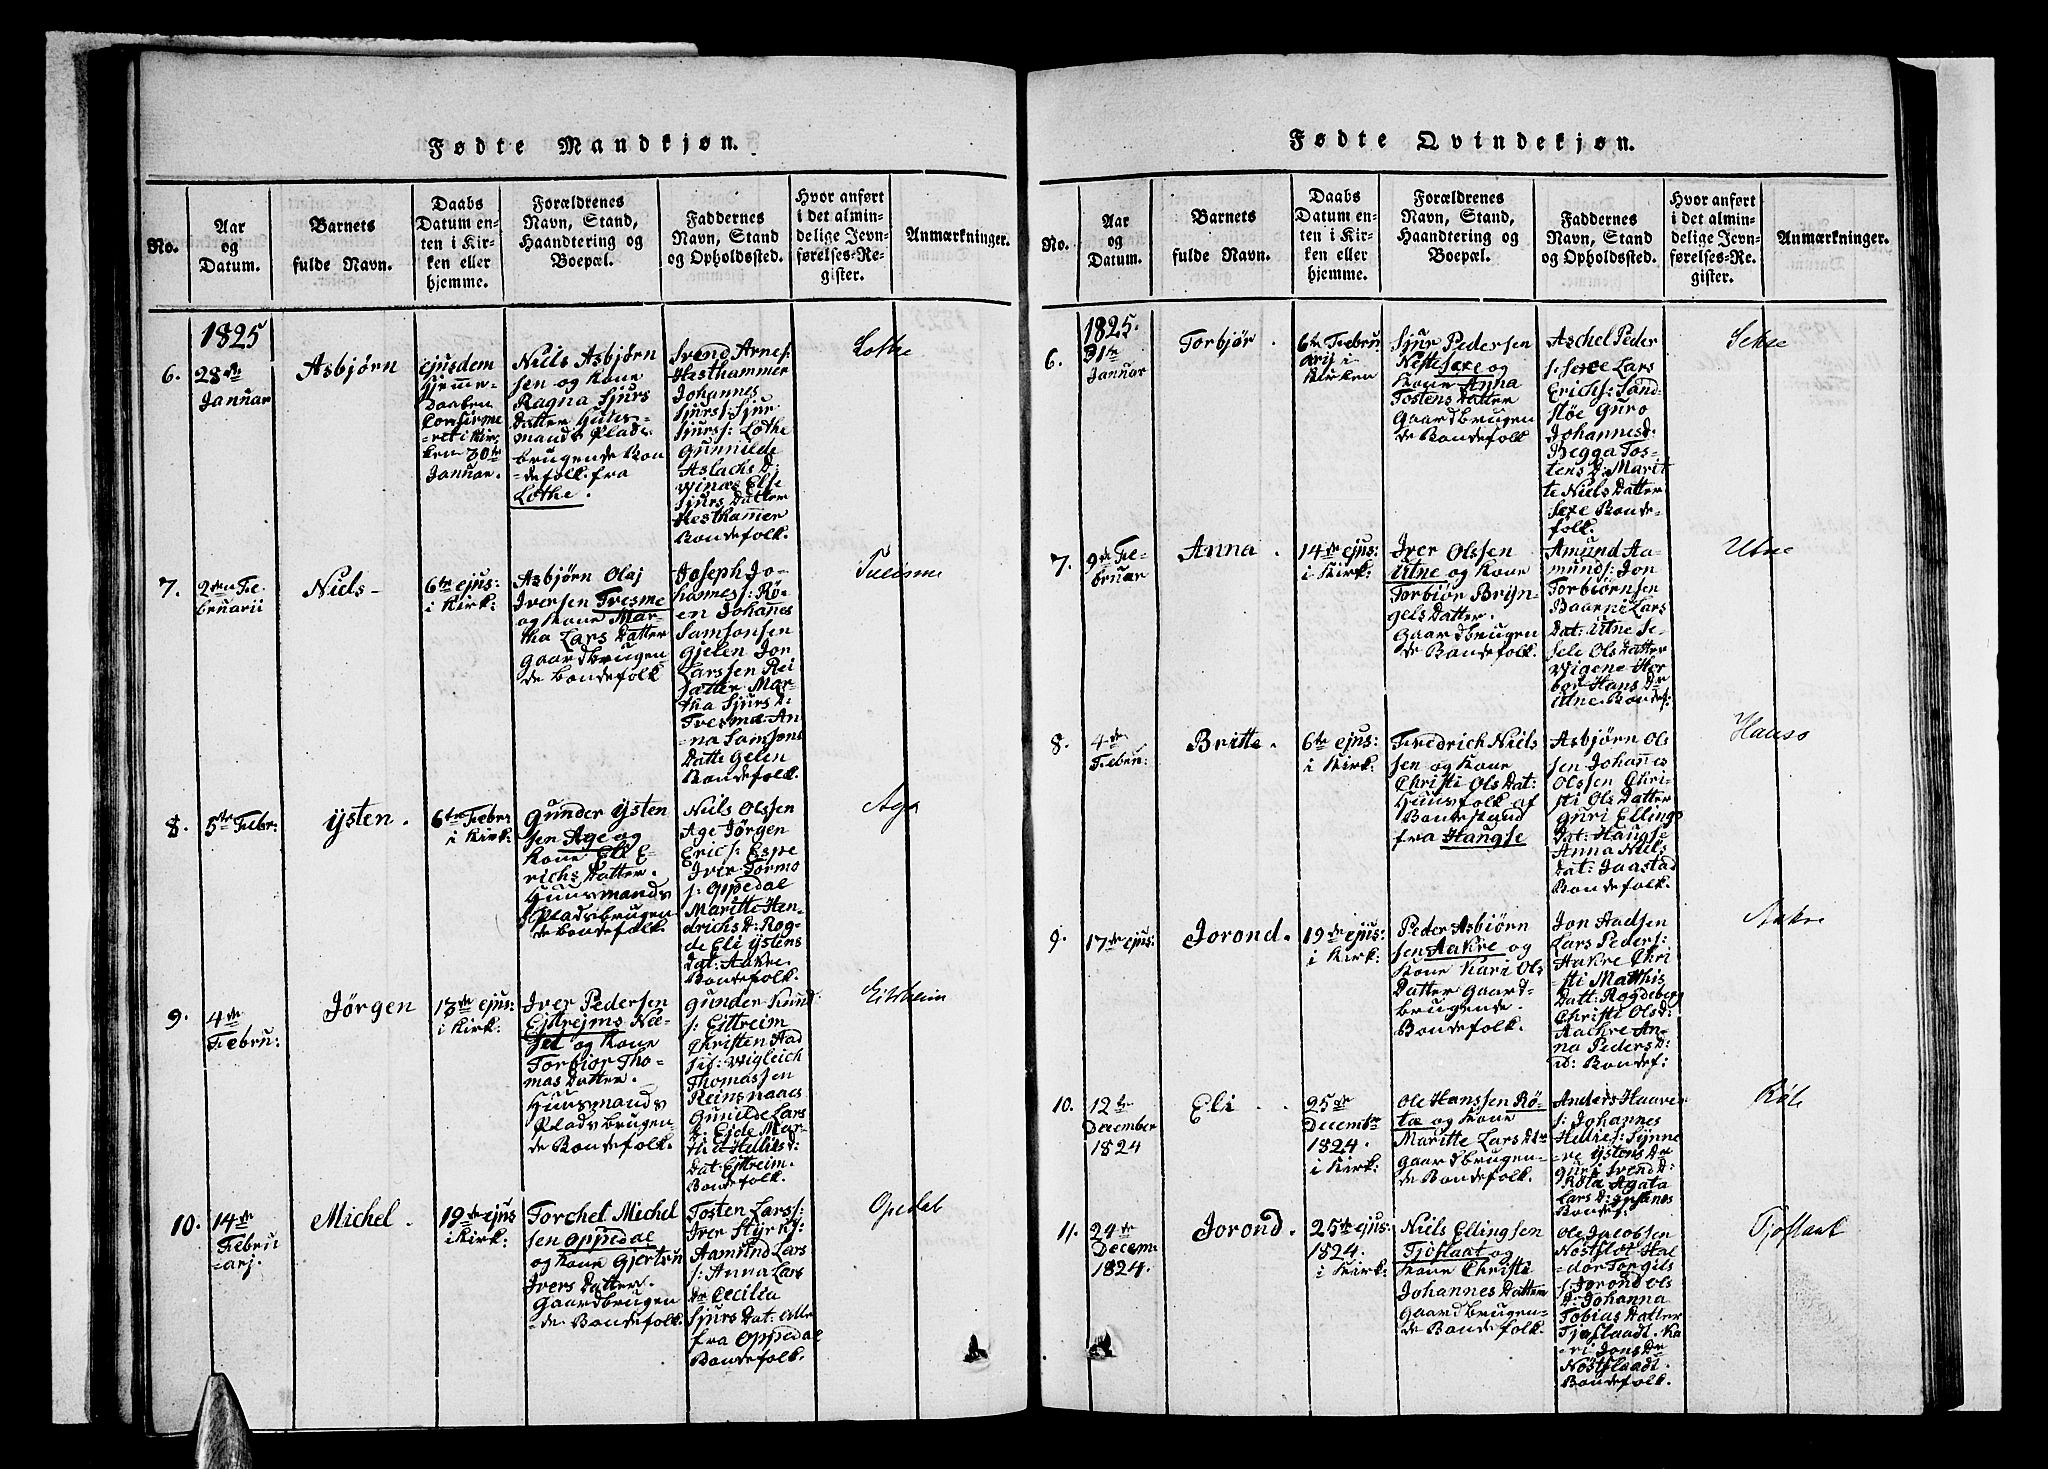 Fødte Mandkjøn.
No.
Aar
og
Datum.
Barnets
fulde Navn.
Daabs
Datum en-
ten i Kir-
ken eller
hjemme.
Forældrenes
Navn, Stand,
Haandtering og
Boepæl.
Faddernes
Navn, Stand
og Opholdssted.
Hvor anført
i det almin-
delige Jevn-
førelses-Re-
gister.
Anmærkninger.
1825
6.
28de
Januar
Asbjørn
ejusdem
hjemme-
Daaben
Confirme
-ret i Kir
ken 30te
Januar.
Niels Asbjørn
sen og Kone
Ragna Sjurs
Datter Huus-
mands Plads
brugende Bon
-defolk fra
Lothe.
Svend Arnes:
Hesthammer
Johannes
Sjurss: Sjur
Sjurss: Lothe
Gunnilde
Aslachs D:
Vines Else
Sjurs Datter
Hesthammer
Bondefolk.
Lothe
7.
2den Fe-
bruarii
Niels-
6te ejus:
i Kirk:
Asbjørn Olaj
Iversen Tresme
og Kone Mar-
tha Lars Datter
Gaardbrugen
de Bondefolk
Joseph Jo-
hannes: Rø-
en Johanes
Samsonsen
Gjelen Jon
Larssen Rei
sætter Mar-
tha Sjurs D:
Tresme An-
-na Samsons
Datte Gelen
Bondefolk.
8.
5te Febr:
Ysten.
6te Febr:
i Kirk:
Gunder Ysten
sen Age og
Kone Eli E-
richs Datter.
Huusmands
Pladsbrugen
de Bondefolk.
Niels Olssen
Age Jørgen
Erics: Espe
Iver Tormo
s: Oppedal
Maritte Hen-
drichs D: Rog-
de Eli Ystens
Dat: Aakre.
Bondefolk.
Aga
9.
4de
Febru:
Jørgen
13de ejus:
i Kirk:
Iver Pedersen
Eittrejms Nee-
set og Kone
Torbior Tho-
mas Datter.
Huusmands
Pladsbrugen-
de Bondefolk.
Gunder Knud
s: Eittreim
Christen Aad
sis: Wigleich
Thomassen
Reinsnaaes
Gunilde Lars
D. Eide Mar-
Dat: Eittreim.
Bondefolk.
Eitrheim
10.
14de
Febru
-arj.
Michel.
19de ejus
i Kirk:
Torchel Michel
sen Oppedal
og Kone Gjertrun
Ivers Datter.
Gaardbrugen
-de Bondefolk.
Tosten Larss:
Iver Styrks:
Aamund Lars
s: Anna Lars
Dr Cecilia
Sjurs Dat: alle
fra Oppedal
Bondefolk.
Opedal
Fødte Qvindekjøn.
No.
Aar
og
Datum.
Barnets
fulde Navn.
Daabs
Datum en-
ten i Kir-
ken eller
hjemme.
Forældrenes
Navn, Stand,
Haandtering og
Boepæl.
Faddernes
Navn, Stand
og Opholdssted.
Hvor anført
i det almin-
delige Jevn-
førelses-Re-
gister.
Anmærkninger.
1825.
6.
31te
Januar
Torbjør.
6te Febru
arij i
Kirken
Sjur Pedersen
Nette Sexe og
Kone Anna
Tostens Datter
Gaardbrugen
de Bondefolk
Aschel Peder
s: Sexe Lars
Erichs: Sand-
støe Guro
Johannes d:
Begga Tos-
tens D: Marit
te Niels Datter
Sexe Bonde-
folk.
7.
9de Fe-
bruar
Anna.
14de ejus:
i Kirk:
Iver Olssen
Utne og Kone
Torbiør Bryn-
gels Datter.
Gaardbrugen
de Bondefolk.
Amund Aa-
munds: Jon
Torbiørnsen
Baarne Lars
Dat: Utne Se-
sele Ols Datter
Wigene Her
bor Hans Dr
Utne. Bondef:
Utne
8.
4de
Febru:
Britte.
6te ejus:
i Kirk:
Fredrich Niels
sen og Kone
Christi Ols Dat:
Huusfolk af
Bondestand
fra Haugse
Asbjørn Ols
sen Johannes
Olssen Chri-
sti Ols Datter
Guri Ellings
Dat: Haugse
Anna Niels
Dat: Jaastad
Bondefolk.
Hauso
9.
17de ejus:
Jorond.
19de ejus:
i Kirk:
Peder Asbiørn
sen Aakre og
Kone Kari Ols
Datter Gaard-
brugende
Bondefolk.
Jon Aadsen
Lars Peders:
Aakre Chri
sti Matthis
Datt: Rogdeberg
Christi Ols d:
Aachre An-
na Peders D:
id: Bondef:
Aakre
10.
12te
December
1824
Eli
25de
Decembr
1824.
i Kirk:
Ole Hanssen Rø-
tæ og Kone
Maritte Lars Dtr
Gaardbrugen-
de Bondefolk.
Anders Haaver
s: Johannes
Helles: Synne
ve Ystens Dr
Guri Svend D:
Røta Agata
Lars D:
Bondef:
11.
24de
Decem:
1824.
Jorond.
25de ejus:
1824.
i Kirk:
Niels Ellingsen
Tjoflaat og
Kone Christi
Johannes Datter
Gaardbrugen-
de Bondefolk.
Ole Jacobsen
Nostflot Hal
dor Torgils
s: Jorond Ols
D: Johanna
Tobias Datter
Tjoflaadt. Ka
-ri Jons Dr
Nøstflaadt.
Bondefolk.
Tjoflaat